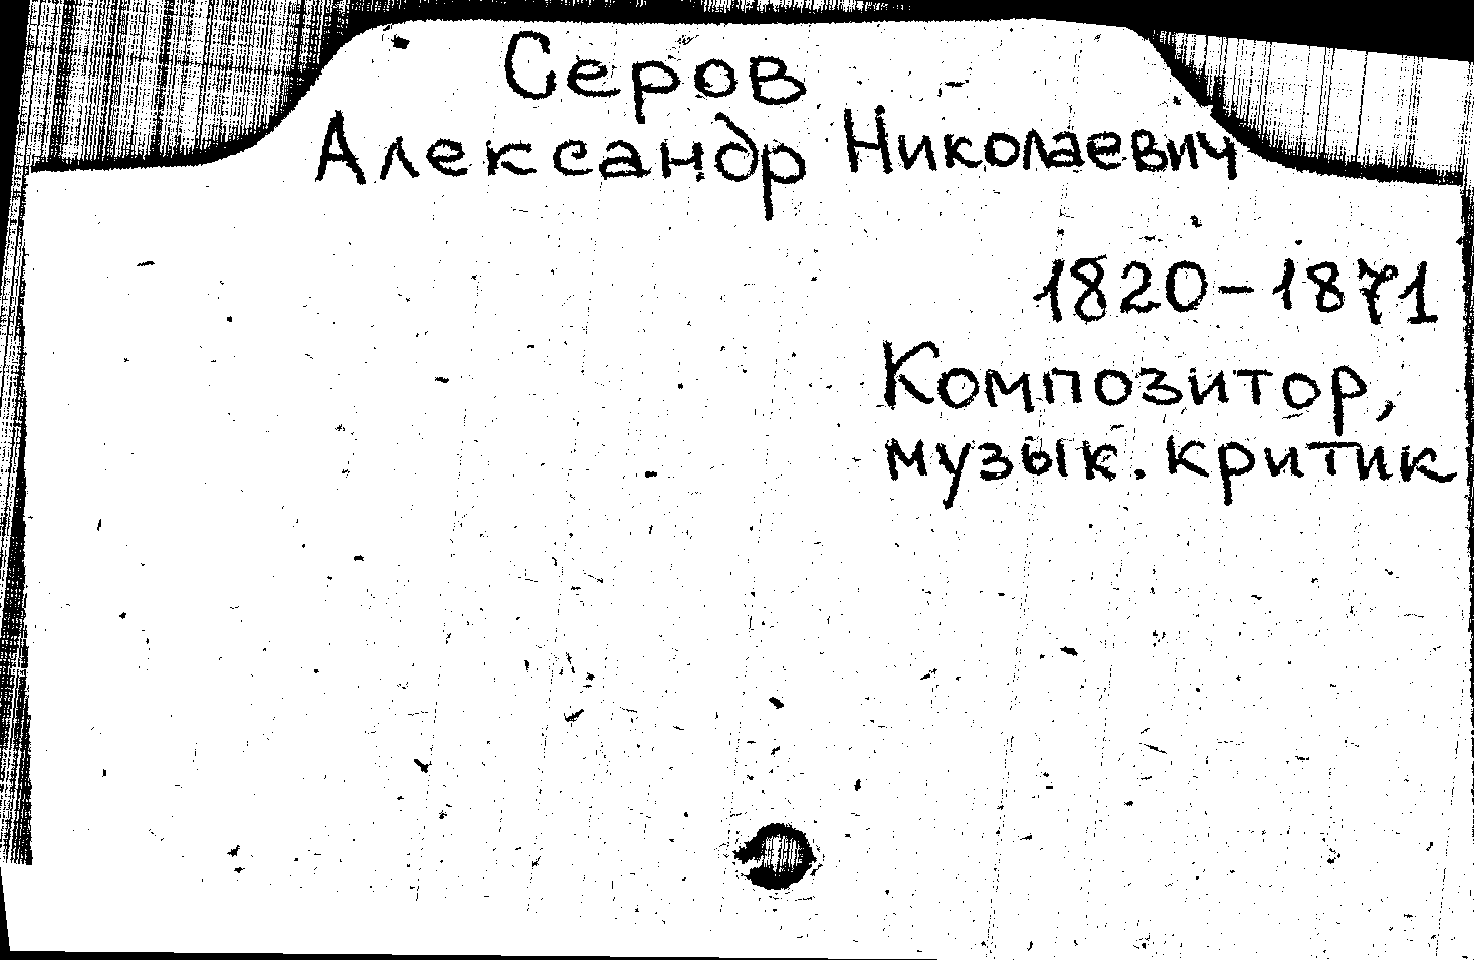 Серов
Александр Николаевич
1820-1871
Композитор,
музык. критик